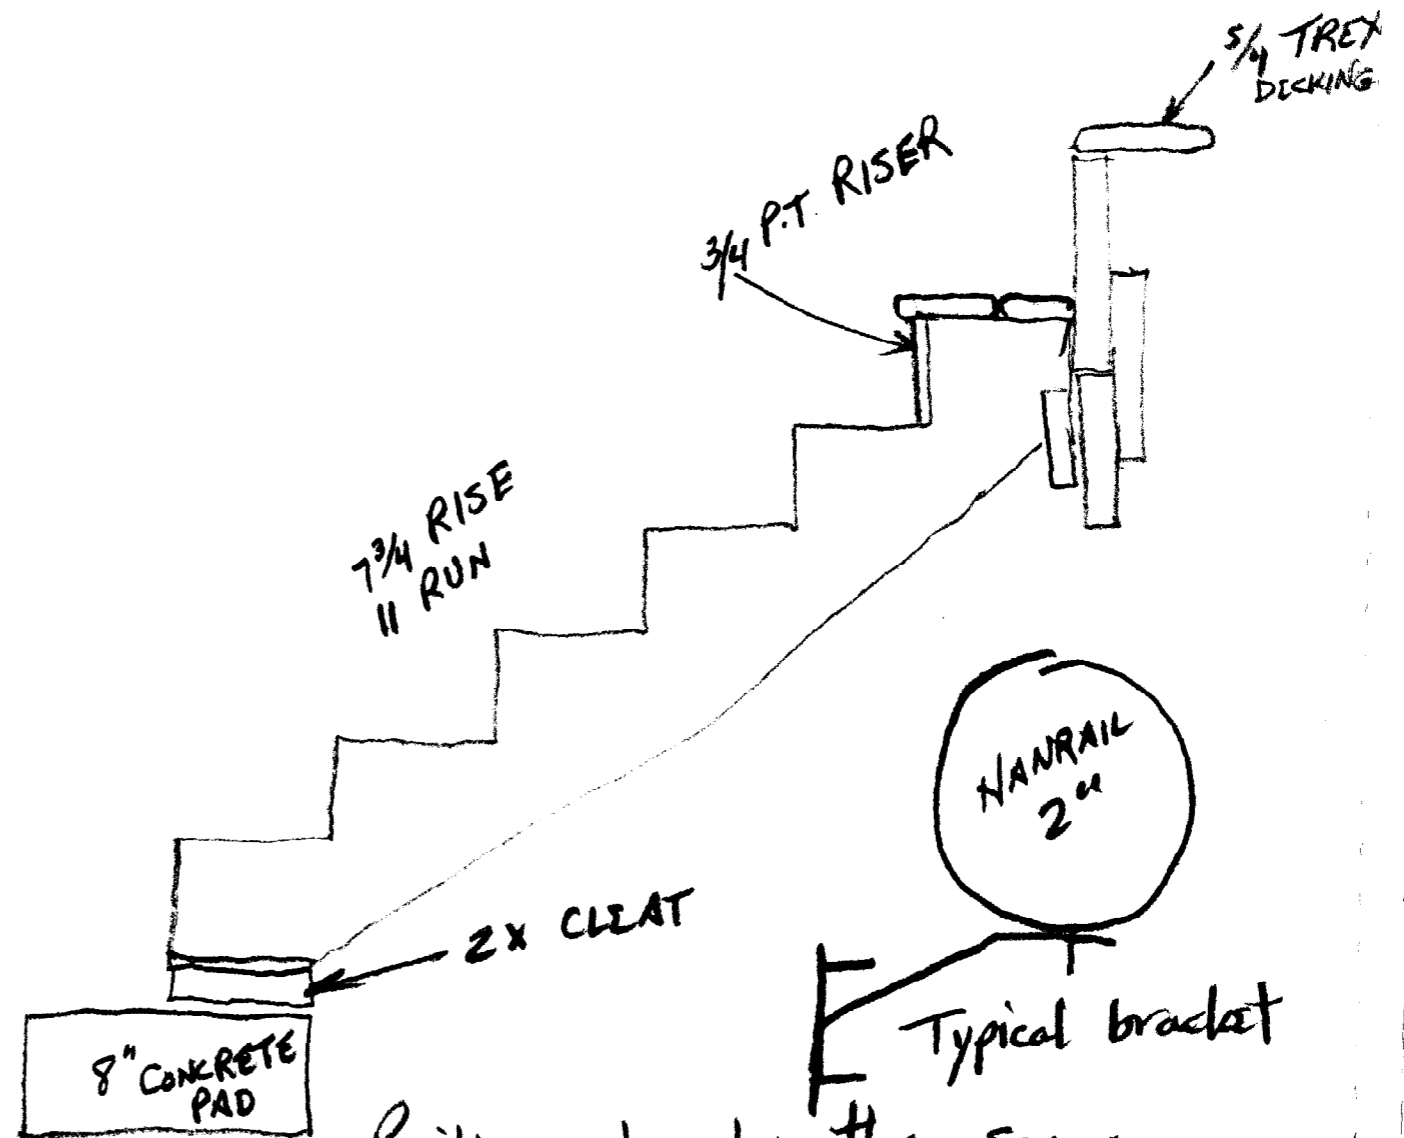 5/4 TREX
DECKING
3/4 P.T. RISER
7 3/4 RISE
11 RUN
HANRAIL
2"
2X CLEAT
Typical bracket
8" CONCRETE
PAD